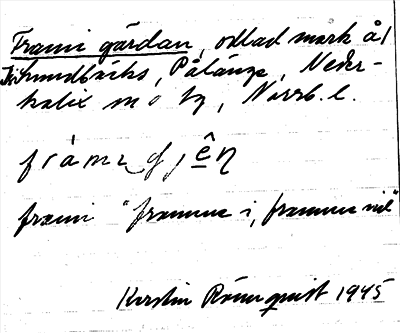 Frami gärdan, odlad mark å 1
Kihrundbäcks, Pålänge, Neder-
kalix sn o tg, Norrb. l.
frám₂ gjên
frami "framme i, framme vid"
Kerstin Rönnquist 1945